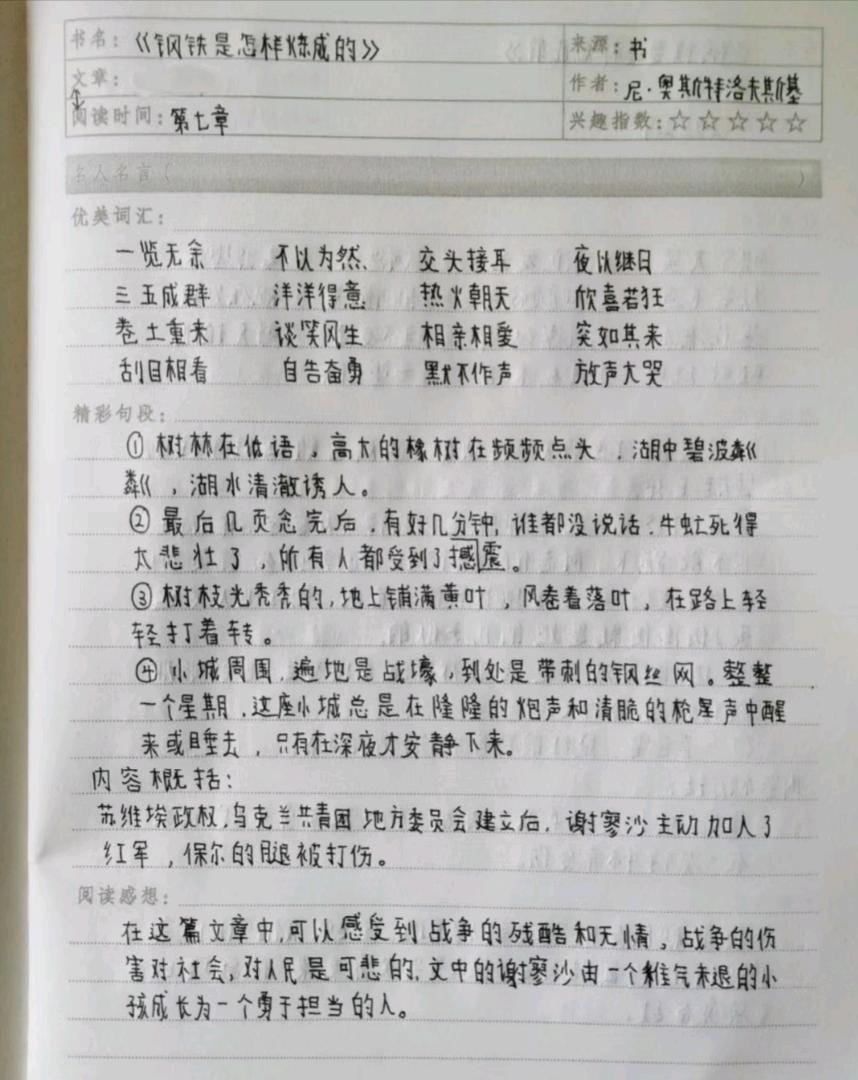 书名：《钢铁是怎样炼成的》 来源：书
文章： 作者：尼·奥斯特洛夫斯基
阅读时间：第七章 兴趣指数：☆☆☆☆☆
名人名言（ ）
优美词汇：
一览无余 不以为然、 交头接耳 夜以继日
三五成群 洋洋得意 热火朝天 欣喜若狂
卷土重来 谈笑风生 相亲相爱 突如其来
刮目相看 自告奋勇 默不作声 放声大哭
精彩句段：
①树林在低语，高大的橡树在频频点头，湖中碧波粼
粼，湖水清澈诱人。
②最后几页念完后，有好几分钟，谁都没说话，牛虻死得
太悲壮了，所有人都受到了撼震。
③树枝光秃秃的，地上铺满黄叶，风卷着落叶，在路上轻
轻打着转。
④小城周围，遍地是战壕，到处是带刺的钢丝网。整整
一个星期，这座小城总是在隆隆的炮声和清脆的枪声中醒
来或睡去，只有在深夜才安静下来。
内容概括：
苏维埃政权，乌克兰共青团地方委员会建立后，谢寥沙主动加入了
红军，保尔的腿被打伤。
阅读感想：
在这篇文章中，可以感受到战争的残酷和无情，战争的伤
害对社会，对人民是可悲的，文中的谢寥沙由一个稚气未退的小
孩成长为一个勇于担当的人。